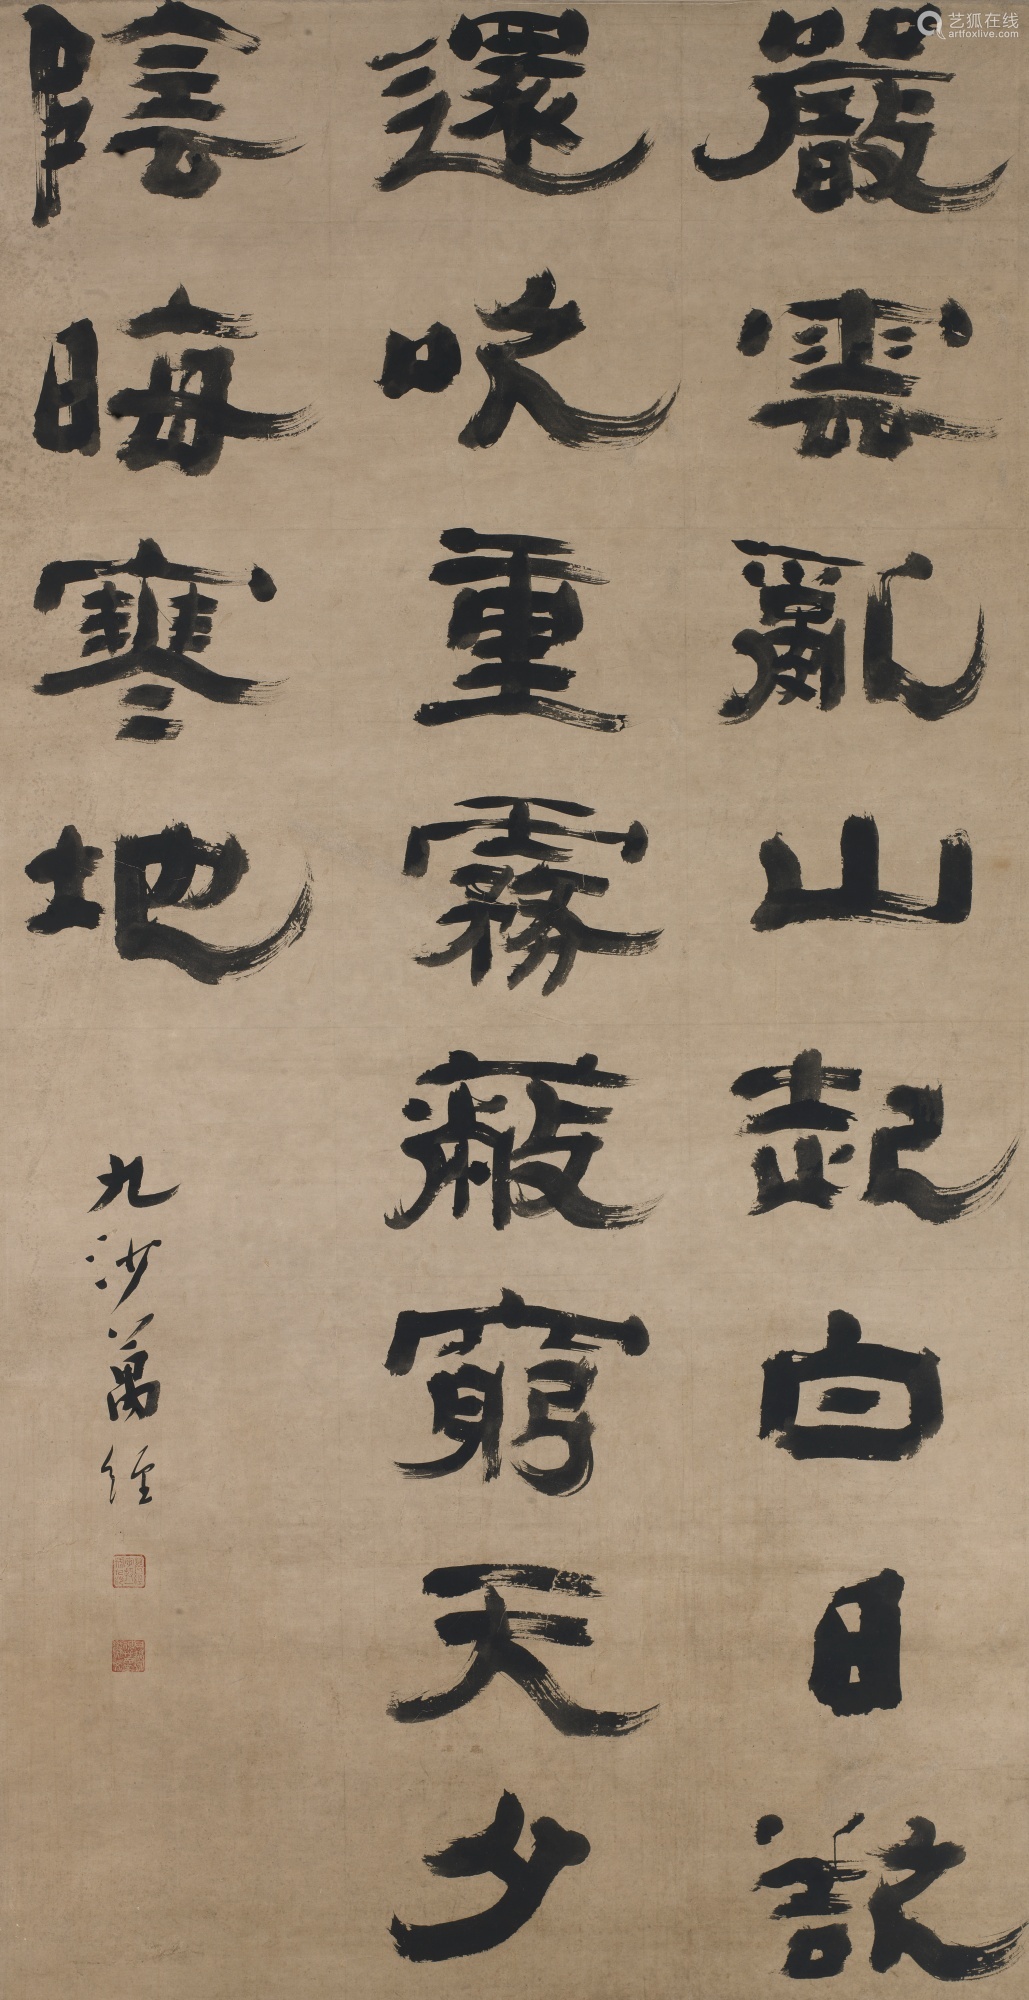 艺狐在线
artfoxlive.com
嚴雲亂山起白日欲
還吹重霧蔽窮天夕
陰晦寒地
九沙萬經